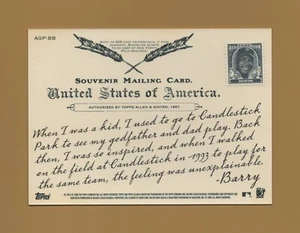 AGP-BB
SOUVENIR MAILING CARD.
United States of America.
AUTHORIZED BY TOPPS ALLEN & GINTER, 1887.
When I was a kid, I used to go to Candlestick
Park to see my godfather and dad play. Back
then, I was so inspired, and when I walked
on the field at Candlestick in 1993 to play for
the same team, the feeling was unexplainable.
-Barry
Topps